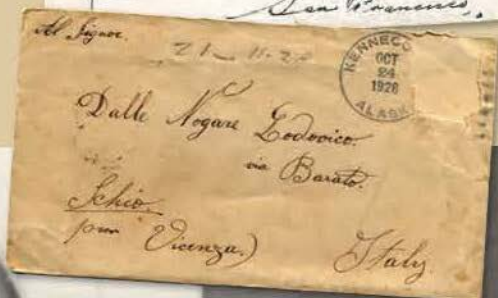 San Francisco,
Al Signor.
KENNECO
OCT
24
1926
ALASK
Dalle Nogare Lodovico.
via Barato.
Schio.
Vicenza.)
Italy